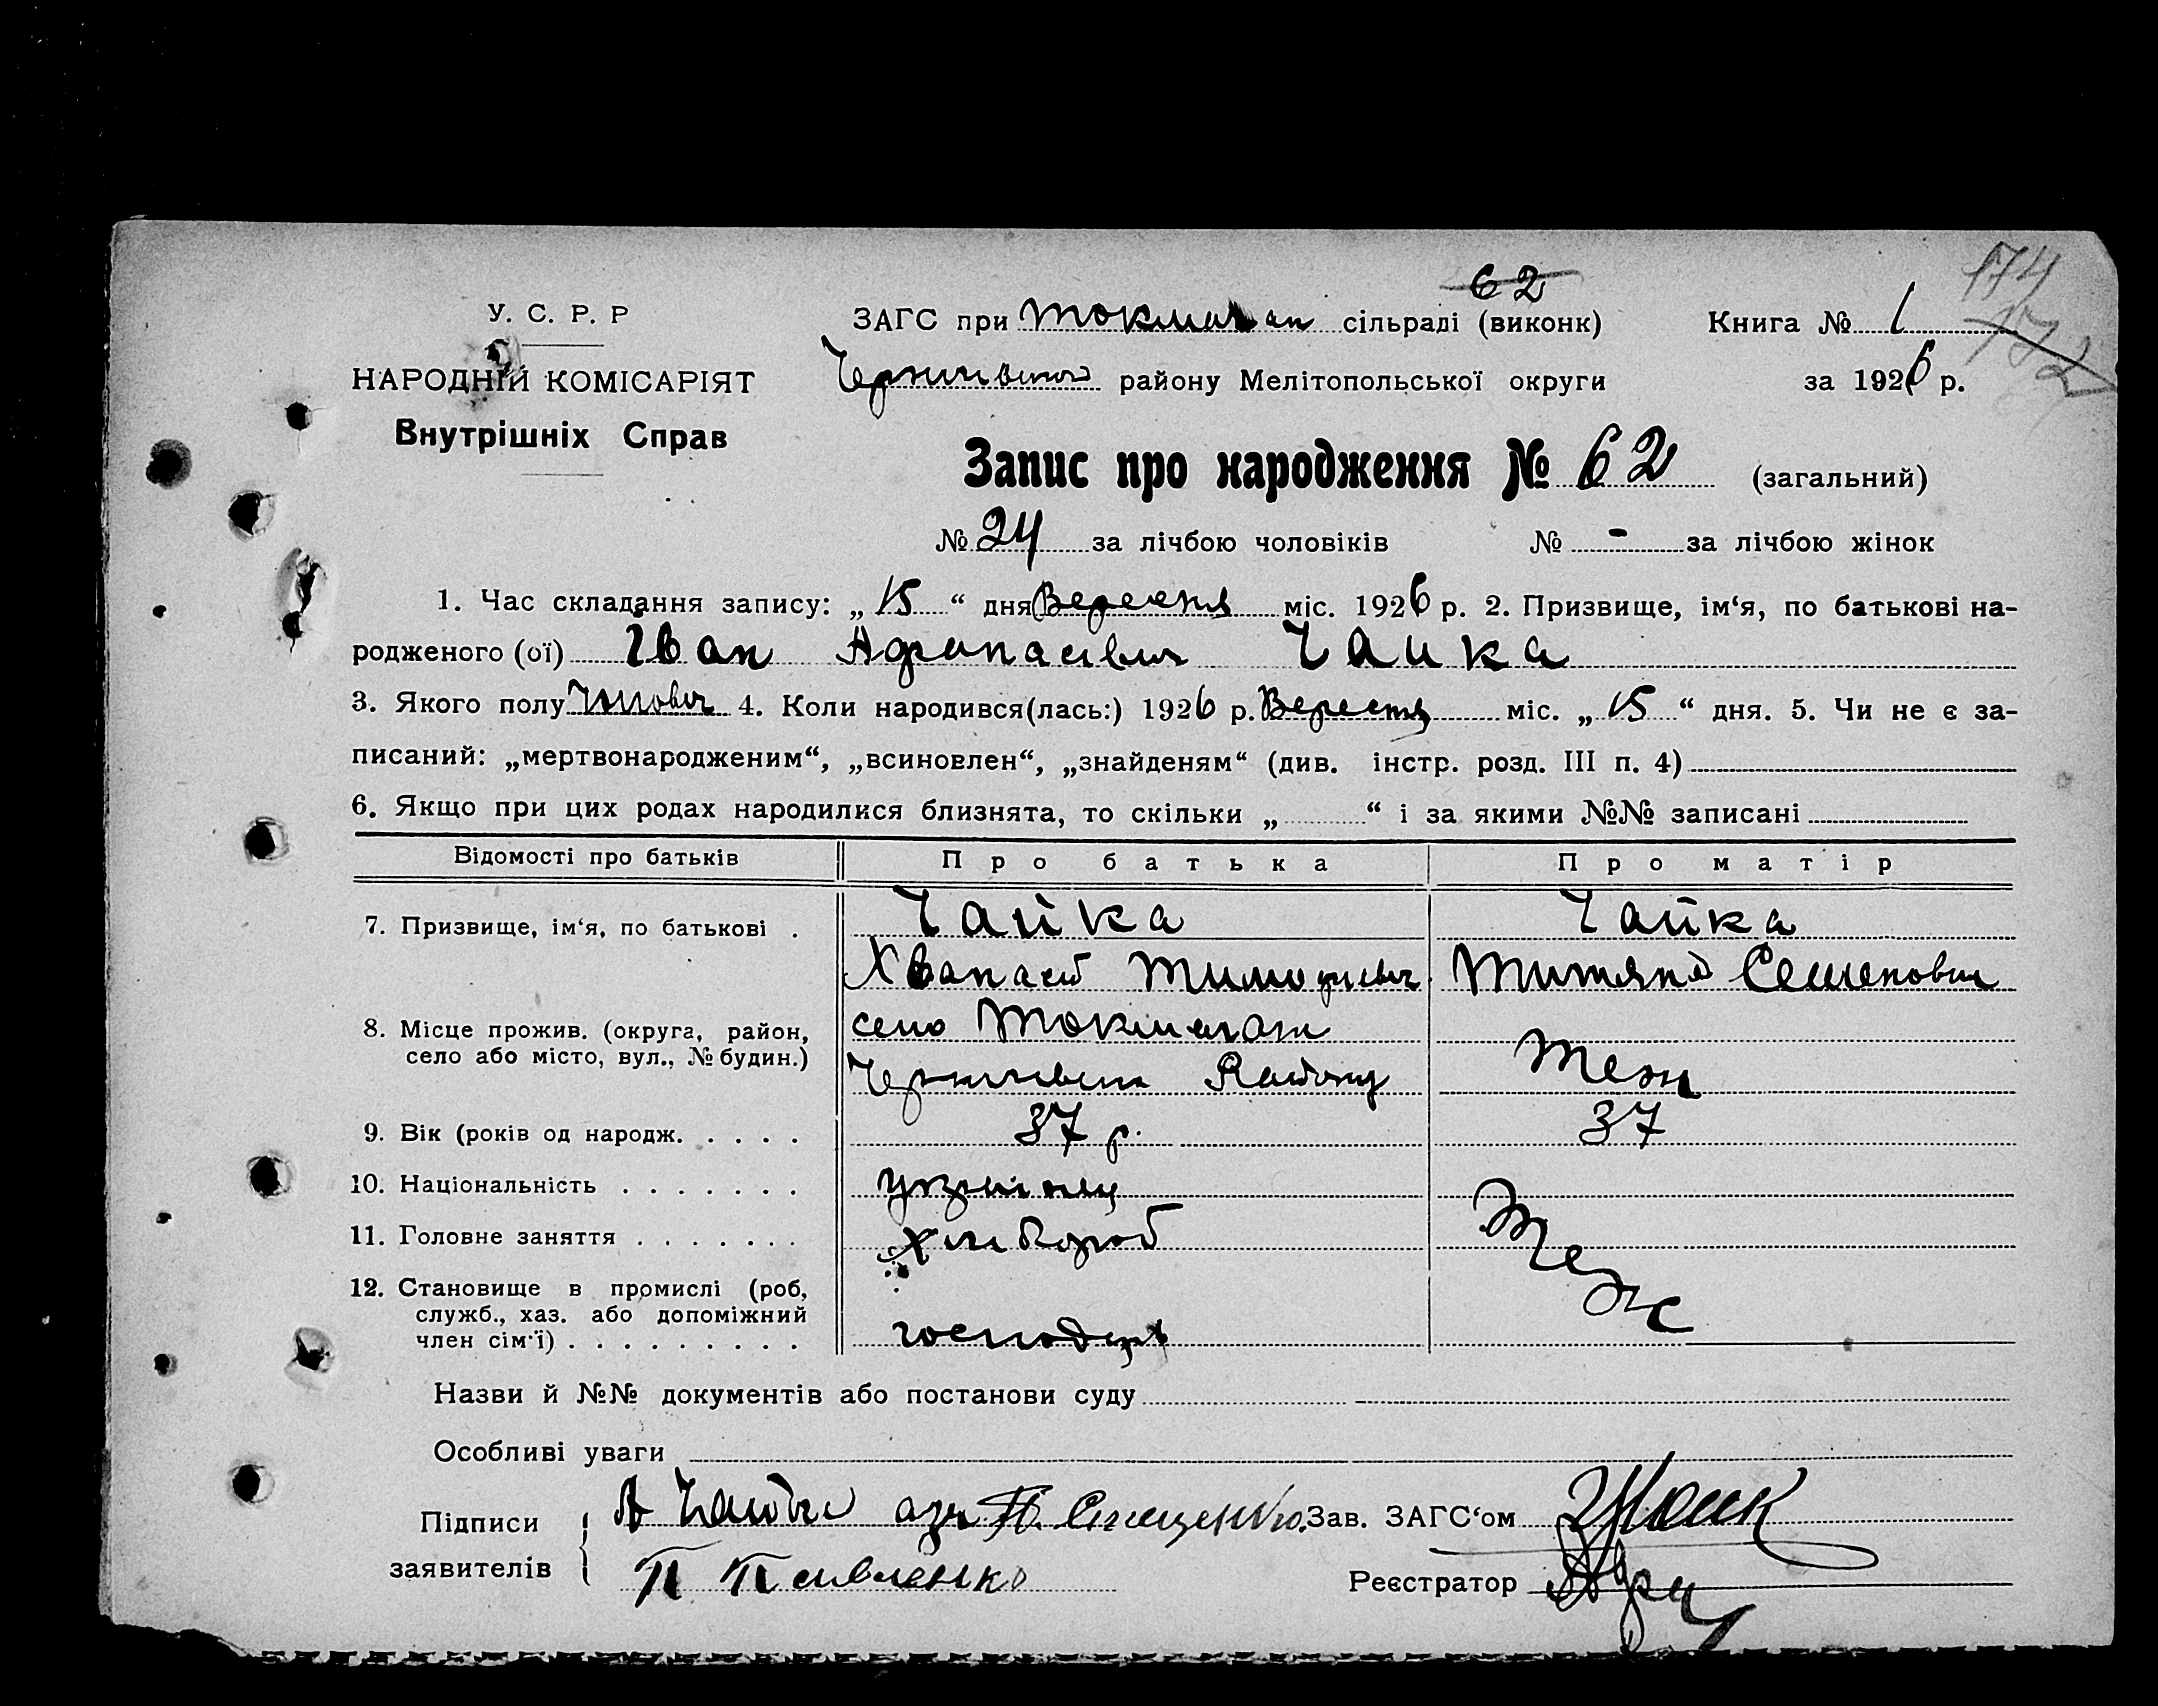 62
174
172
У. С. Р. Р
НАРОДНІЙ КОМІСАРІЯТ
Внутрішніх Справ
ЗАГС при Токмачан сільраді (виконк)
Книга № 1
Чернигівської району Мелітопольської округи
за 1926 р.
Запис про народження № 62 (загальний)
№ 24 за лічбою чоловіків № - за лічбою жінок
1. Час складання запису: „15“ дня Вересня міс. 1926 р. 2. Призвище, ім‘я, по батькові на-
родженого (ої) Іван Афанасієвич Чайка
3. Якого полу 4. Коли народився(лась:) 1926 р. Вересня міс. „15“ дня. 5. Чи не є за-
писаний: „мертвонародженим“, „всиновлен“, „знайденям“ (див. інстр. розд. III п. 4)
6. Якщо при цих родах народилися близнята, то скільки „ “ і за якими №№ записані
Відомості про батьків Про батька Про матір
7. Призвище, ім‘я, по батькові . Чайка Чайка
Хванасій Тимофиевич Титяна Семеновна
8. Місце прожив. (округа, район, село або місто, вул., № будин.) село Токмачат
Чернигівськ Району Теж
9. Вік (років од народж. . . . . 37 р. 37
10. Національність . . . . . . . українец
11. Головне заняття . . . . . . . хлібороб Теж
12. Становище в промислі (роб, служб., хаз. або допоміжний член сім‘ї) . . . . . . . . . господар
Назви й №№ документів або постанови суду
Особливі уваги
Підписи заявителів { А Чайка
Зав. ЗАГС‘ом
П Павленко
Реєстратор